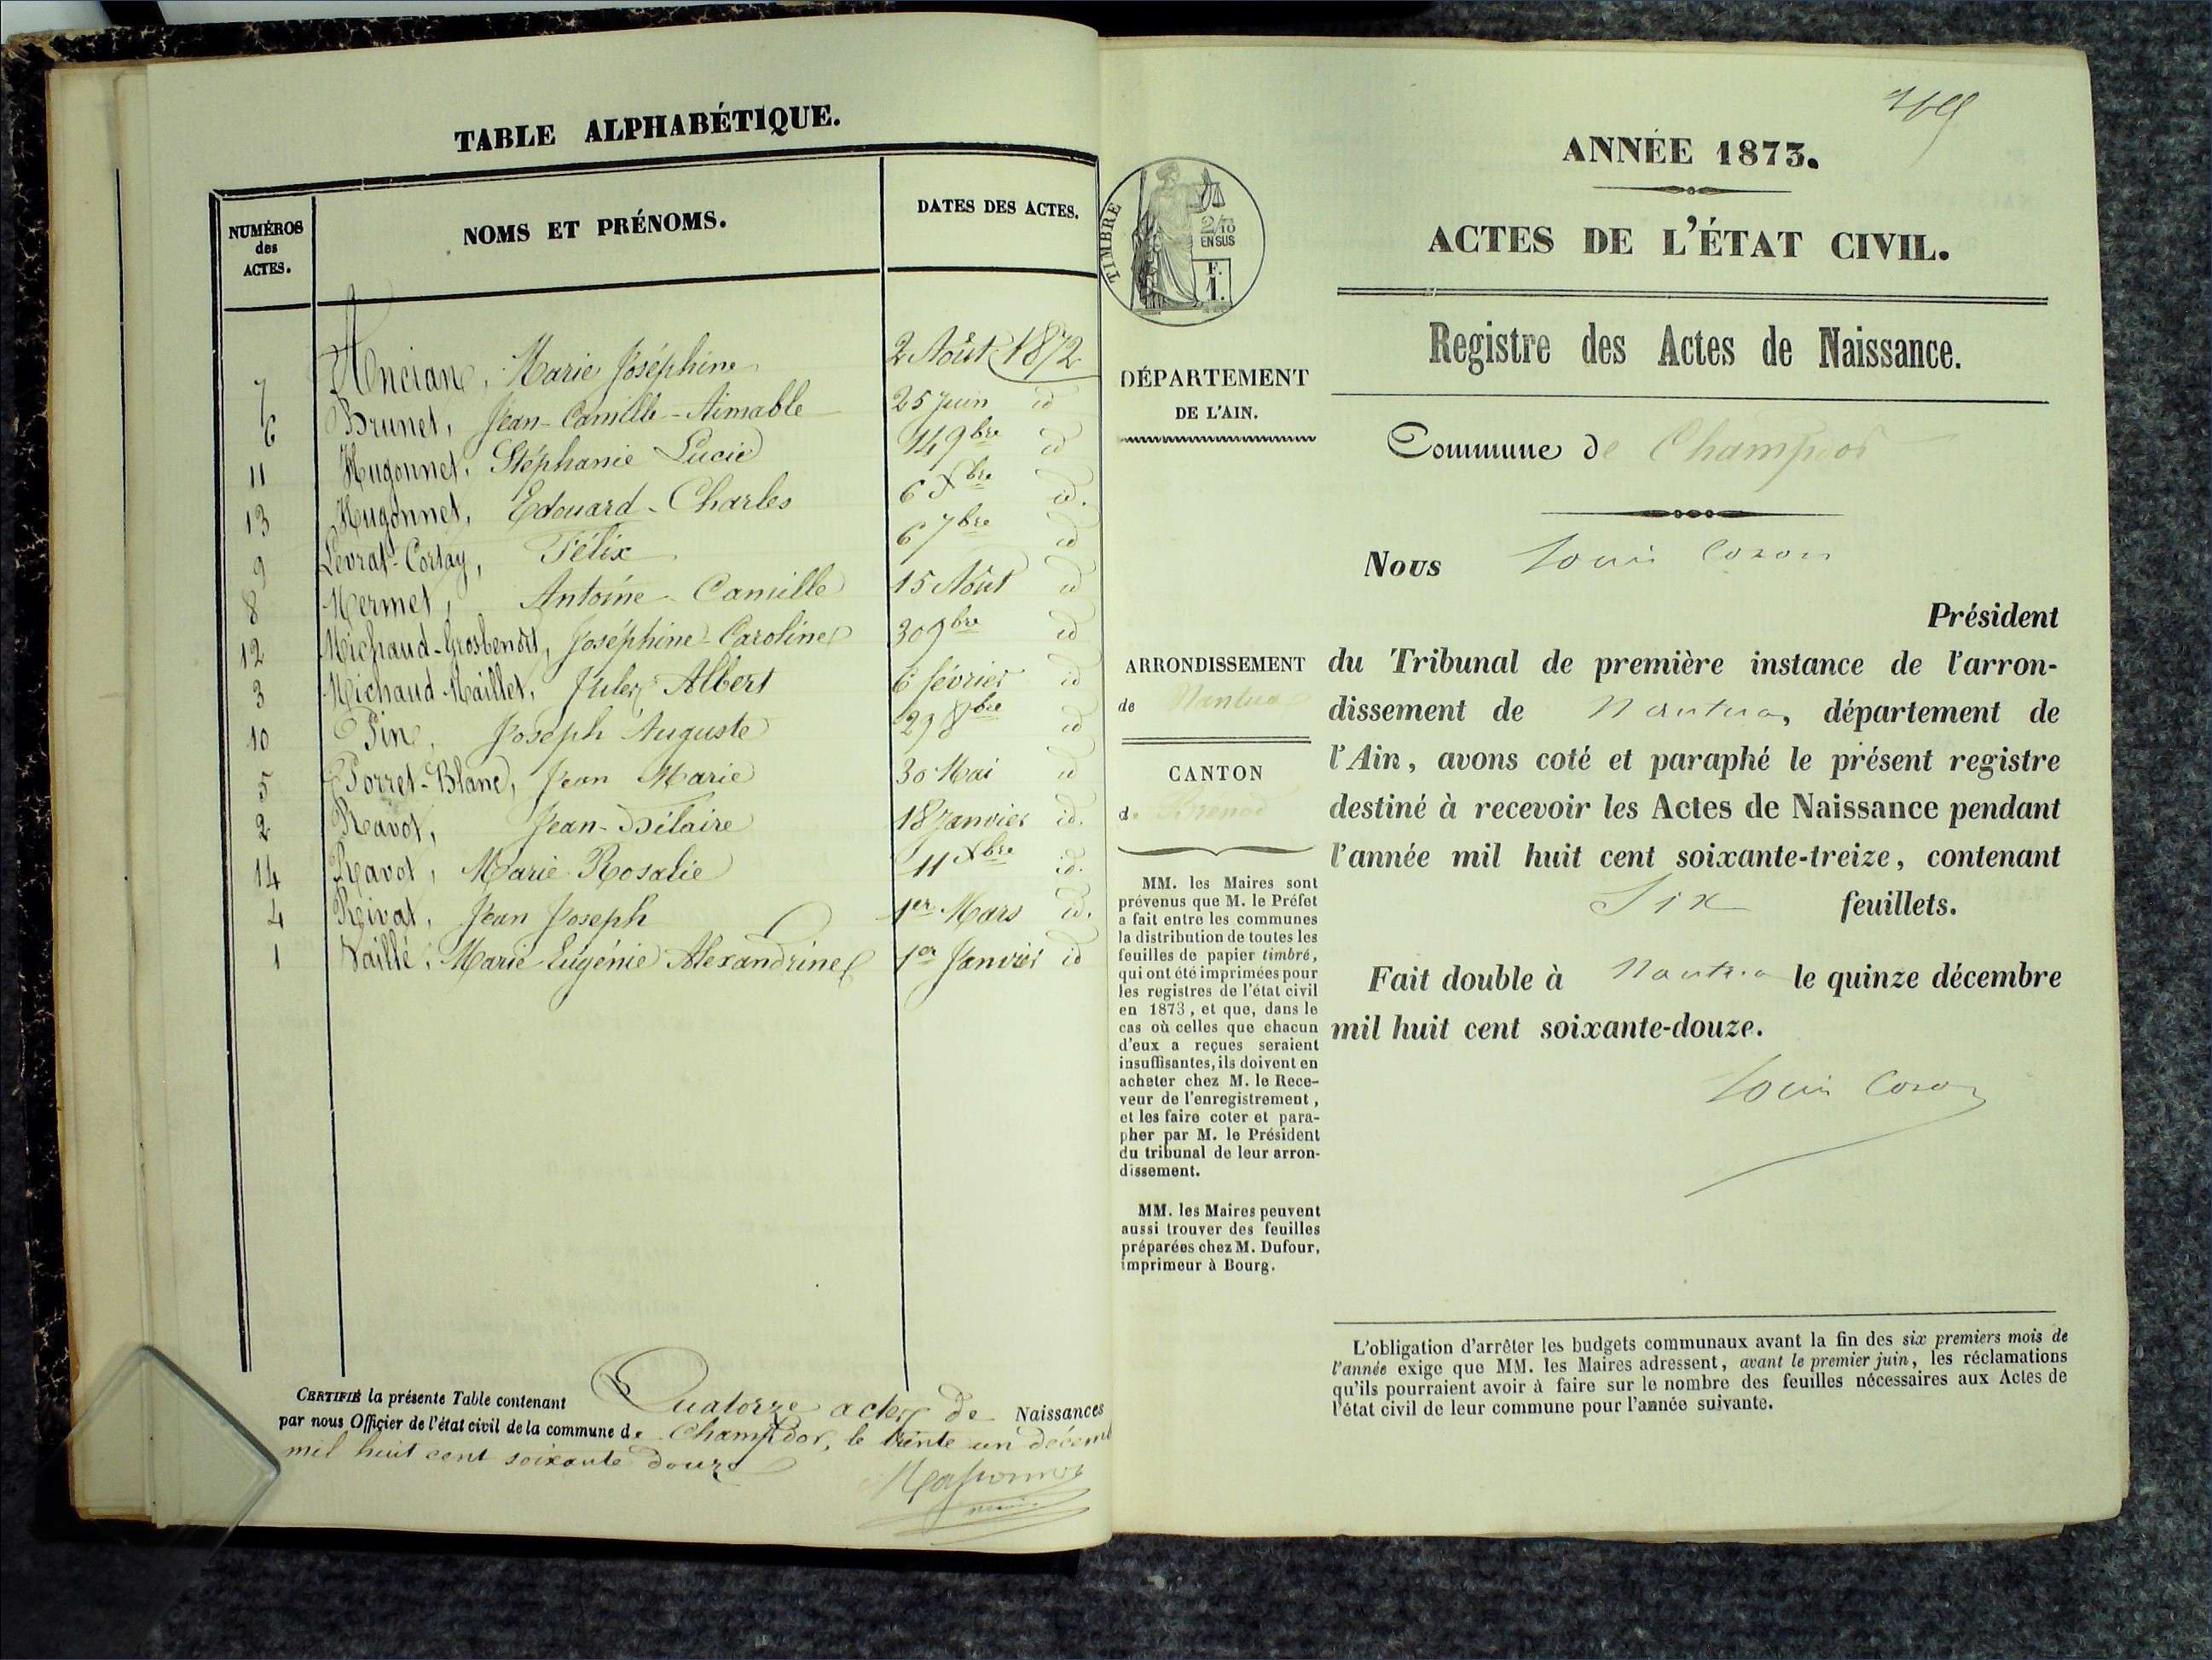 TABLE ALPHABÉTIQUE.
NUMÉROS
des
ACTES.
NOMS ET PRÉNOMS.
DATES DES ACTES.
7 Anciant, Marie Joséphine 2 Août 1872
6 Brunet, Jean-Camille-Aimable 25 Juin id
11 Hugonnet, Stéphanie Lucie 14 9bre id
13 Hugonnet, Edouard-Charles 6 Xbre id.
9 Levrat-Cortay, Félix 6 7bre id
8 Mermet, Antoine-Camille 15 Août id
12 Michaud-Grosbenoit, Joséphine-Caroline 30 9bre id
3 Michaud-Maillet, Jules Albert 6 février id
10 Pin, Joseph Auguste 29 8bre id
5 Porret-Blanc, Jean Marie 30 Mai id
2 Ravot, Jean-Hilaire 18 Janvier id.
14 Ravot, Marie-Rosalie 11 Xbre id.
4 Reivat, Jean Joseph 1er Mars id.
1 Vaillé, Marie-Eugénie Alexandrine 1er Janvier id
CERTIFIÉ la présente Table contenant Quatorze actes de Naissances
par nous Officier de l'état civil de la commune de Champdor, le trente un décem
mil huit cent soixante douze
ANNÉE 1873.
ACTES DE L'ÉTAT CIVIL.
TIMBRE
2/10
EN SUS
F.
1.
Registre des Actes de Naissance.
DÉPARTEMENT
DE L'AIN.
Commune de Champdor
Nous Louis Coron
Président
ARRONDISSEMENT
de Nantua
CANTON
de Brenod
du Tribunal de première instance de l'arron-
dissement de Nantua, département de
l'Ain, avons coté et paraphé le présent registre
destiné à recevoir les Actes de Naissance pendant
l'année mil huit cent soixante-treize, contenant
Six feuillets.
Fait double à Nantua le quinze décembre
mil huit cent soixante-douze.
Louis Coron
MM. les Maires sont
prévenus que M. le Préfet
a fait entre les communes
la distribution de toutes les
feuilles de papier timbré,
qui ont été imprimées pour
les registres de l'état civil
en 1873, et que, dans le
cas où celles que chacun
d'eux a reçues seraient
insuffisantes, ils doivent en
acheter chez M. le Rece-
veur de l'enregistrement,
et les faire coter et para-
pher par M. le Président
du tribunal de leur arron-
dissement.
MM. les Maires peuvent
aussi trouver des feuilles
préparées chez M. Dufour,
imprimeur à Bourg.
L'obligation d'arrêter les budgets communaux avant la fin des six premiers mois de
l'année exige que MM. les Maires adressent, avant le premier juin, les réclamations
qu'ils pourraient avoir à faire sur le nombre des feuilles nécessaires aux Actes de
l'état civil de leur commune pour l'année suivante.